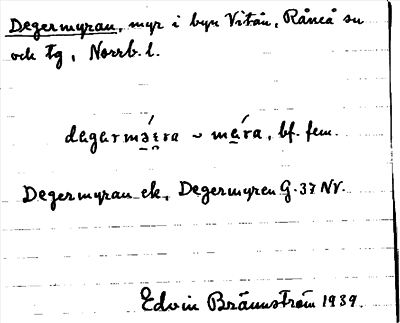 Degermyran, myr i byn Vitån, Råneå sn
och tg, Norrb. l.
degermə́ɪ̨ra ~ mɛ́ra, bf. fem.
Degermyran ek, Degermyren G. 37 NV.
Edvin Brännström 1939.